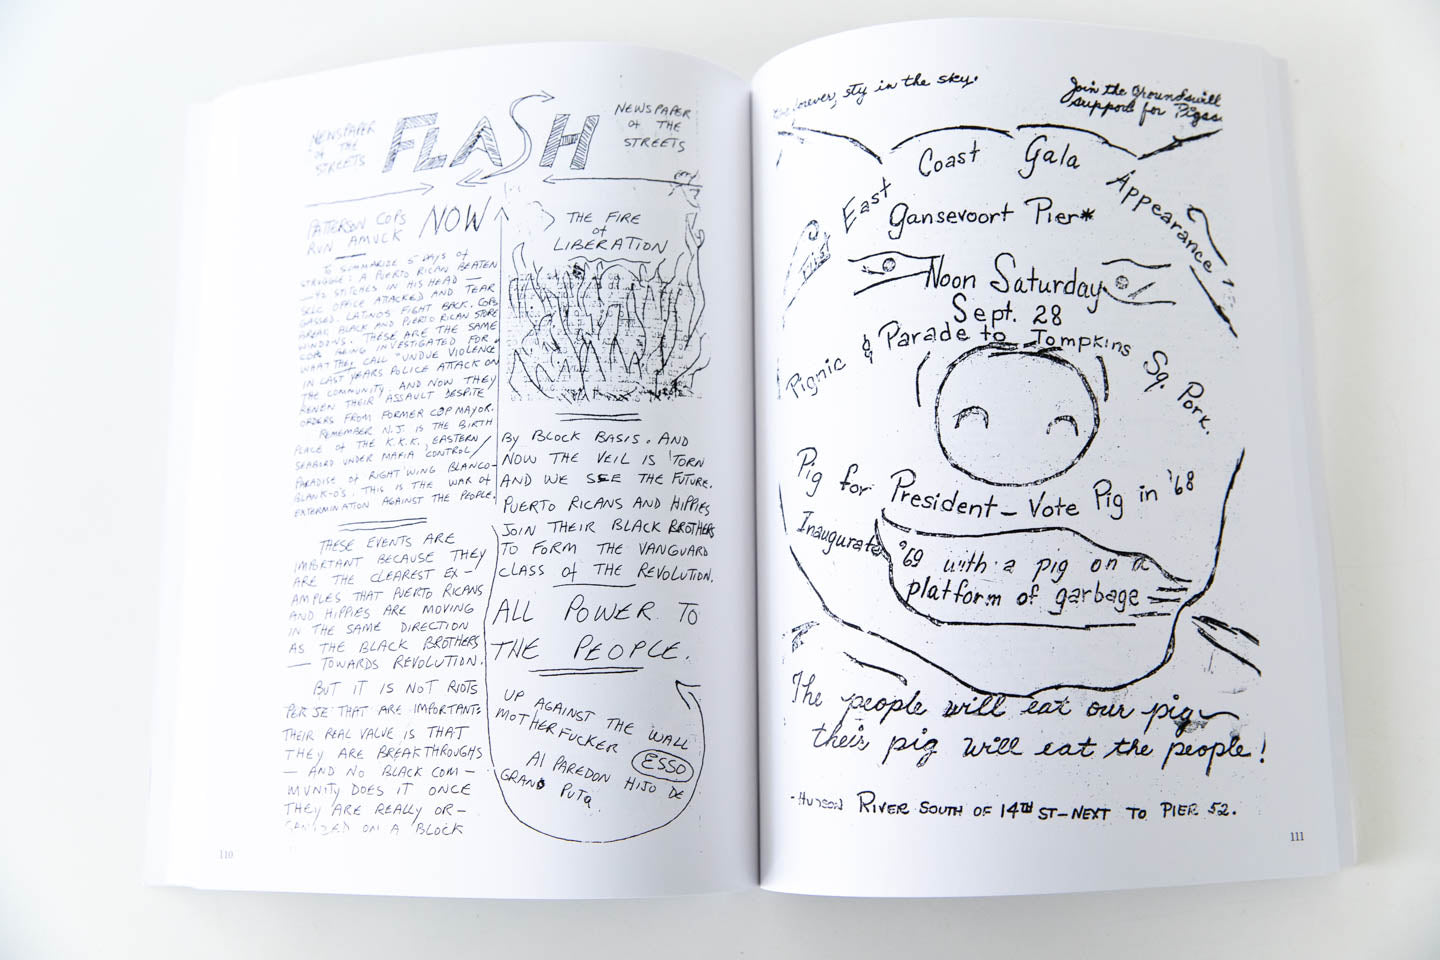 NEWSPAPER
of THE
STREETS
FLASH
NEWSPAPER
of THE
STREETS
PATTERSON COPS
RUN AMUCK
NOW
TO SUMMARIZE 5 DAYS of
STRUGGLE: A PUERTO RICAN BEATEN
— 40 STITCHES IN HIS HEAD
SCLC OFFICE ATTACKED AND TEAR
GASSED. LATINOS FIGHT BACK. COPS
BREAK BLACK AND PUERTO RICAN STORE
WINDOWS. THESE ARE THE SAME
COPS BEING INVESTIGATED FOR
WHAT THEY CALL "UNDUE VIOLENCE
IN LAST YEARS POLICE ATTACK ON
THE COMMUNITY, AND NOW THEY
RENEW THEIR ASSAULT DESPITE
ORDERS FROM FORMER COP MAYOR.
REMEMBER N.J. IS THE BIRTH
PLACE OF THE K.K.K., EASTERN
SEABORD UNDER MAFIA CONTROL/
PARADISE OF RIGHT WING BLANCO-
BLANK-O'S. THIS IS THE WAR OF
EXTERMINATION AGAINST THE PEOPLE.
THESE EVENTS ARE
IMPORTANT BECAUSE THEY
ARE THE CLEAREST EX—
AMPLES THAT PUERTO RICANS
AND HIPPIES ARE MOVING
IN THE SAME DIRECTION
AS THE BLACK BROTHERS
— TOWARDS REVOLUTION.
BUT IT IS NOT RIOTS
PER SE THAT ARE IMPORTANT:
THEIR REAL VALUE IS THAT
THEY ARE BREAKTHROUGHS
— AND NO BLACK COM—
MUNITY DOES IT ONCE
THEY ARE REALLY OR—
GANIZED ON A BLOCK
THE FIRE
of
LIBERATION
BY BLOCK BASIS. AND
NOW THE VEIL IS TORN
AND WE SEE THE FUTURE.
PUERTO RICANS AND HIPPIES
JOIN THEIR BLACK BROTHERS
TO FORM THE VANGUARD
CLASS of THE REVOLUTION.
ALL POWER TO
THE PEOPLE.
UP AGAINST THE WALL
MOTHERFUCKER
Al PAREDON HIJO DE
GRAND PUTA
ESSO
110
forever, sty in the sky.
Join the Groundswill
support for Pigss.
East Coast Gala Appearance
Gansevoort Pier*
Noon Saturday
Sept. 28
Pignic & Parade to Tompkins Sq. Pork.
Pig for President — Vote Pig in '68
Inaugurate '69 with a pig on a
platform of garbage
The people will eat our pig—
their pig will eat the people!
- HUDSON RIVER SOUTH OF 14TH ST — NEXT TO PIER 52.
111